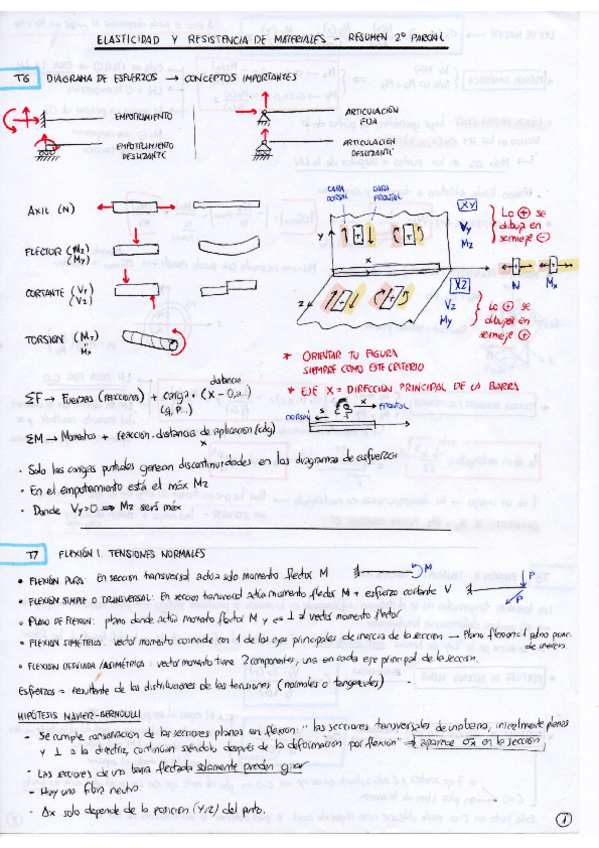 ELASTICIDAD Y RESISTENCIA DE MATERIALES - RESUMEN 2º PARCIAL
T6 DIAGRAMA DE ESFUERZOS → CONCEPTOS IMPORTANTES
EMPOTRAMIENTO
ARTICULACIÓN FIJA
EMPOTRAMIENTO DESLIZANTE
ARTICULACIÓN DESLIZANTE
AXIL (N)
FLECTOR (Mz)
(My)
CORTANTE (Vy)
(Vz)
TORSION (MT)
Mx
CARA DORSAL
CARA FRONTAL
Y
X
Z
XY
Vy
Mz
Lo ⊕ se dibuja en semieje ⊖
N
Mx
XZ
Vz
My
Lo ⊕ se dibuja en semieje ⊕
* ORIENTAR TU FIGURA SIEMPRE COMO ESTE CRITERIO
* EJE X = DIRECCIÓN PRINCIPAL DE LA BARRA
DORSAL
FRONTAL
distancia
ΣF → Fuerzas (reacciones) + carga · (x - 0,a...)
(q, P...)
ΣM → Momentos + reaccion · distancia de aplicación (cdg)
x
· Solo las cargas puntuales generan discontinuidades en los diagramas de esfuerzos
· En el empotramiento está el máx Mz
· Donde Vy=0 ⟹ Mz será máx
T7 FLEXIÓN I. TENSIONES NORMALES
• FLEXIÓN PURA: En seccion transversal actúa solo momento flector M
M
• FLEXIÓN SIMPLE O TRANSVERSAL: En seccion transversal actúa momento flector M + esfuerzo cortante V
P
P
• PLANO DE FLEXION: plano donde actúa momento flector M y es ⊥ al vector momento flector
• FLEXION SIMÉTRICA: vector momento coincide con 1 de los ejes principales de inercia de la sección → Plano flexion = 1 plano princ. de inercia
• FLEXION DESVIADA/ASIMÉTRICA: vector momento tiene 2 componentes, una en cada eje principal de la sección.
Esfuerzos = resultante de las distribuciones de las tensiones (normales o tangenciales)
HIPÓTESIS NAVIER-BERNOULLI
- Se cumple conservación de las secciones planas en flexion: "las secciones transversales de una barra, inicialmente planas y ⊥ a la directriz, continúan siéndolo después de la deformación por flexión" ⇒ aparece σx en la sección
- Las secciones de una barra flectada solamente pueden girar
- Hay una fibra neutra
- Δx solo depende de la posición (Y,Z) del punto.
1